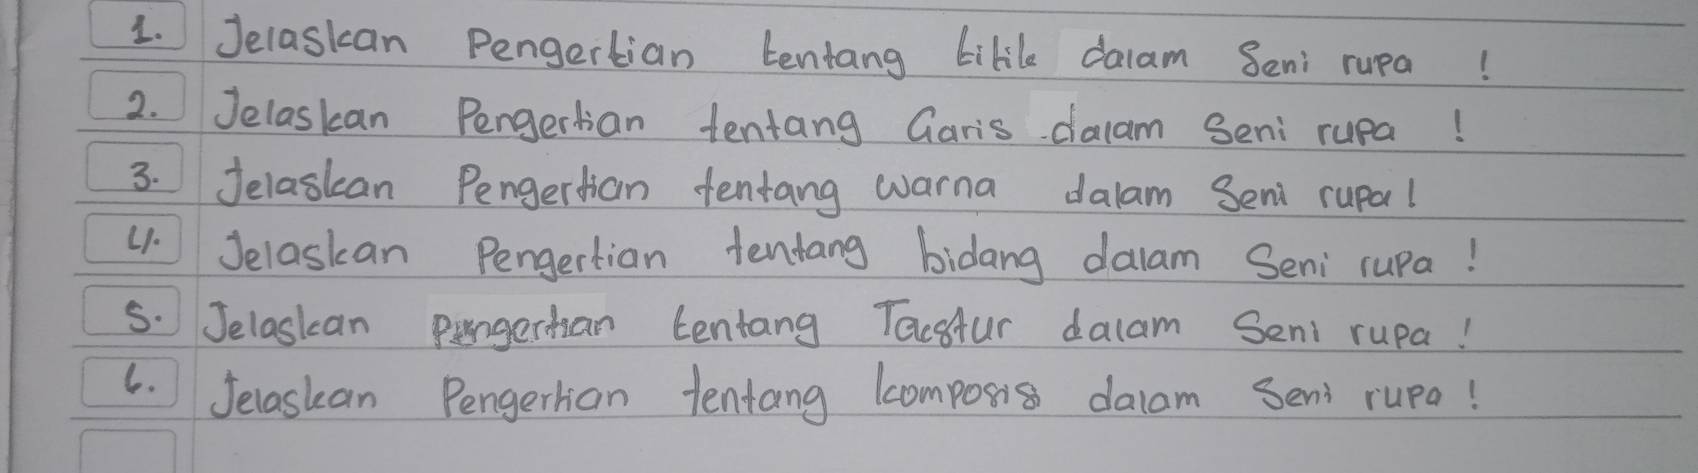 1. Jelaskan Pengertian tentang titik dalam Seni rupa !
2. Jelaskan Pengertian tentang Garis dalam Seni rupa !
3. Jelaskan Pengertian tentang warna dalam Seni rupa!
4. Jelaskan Pengertian tentang bidang dalam Seni rupa !
5. Jelaskan Pengertian tentang Tacstur dalam Seni rupa !
6. Jelaskan Pengertian tentang komposis dalam Seni rupa !